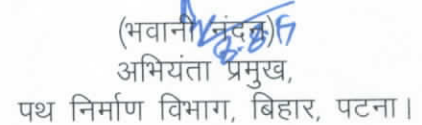 (भवानी नंदन)
अभियंता प्रमुख,
पथ निर्माण विभाग, बिहार, पटना।